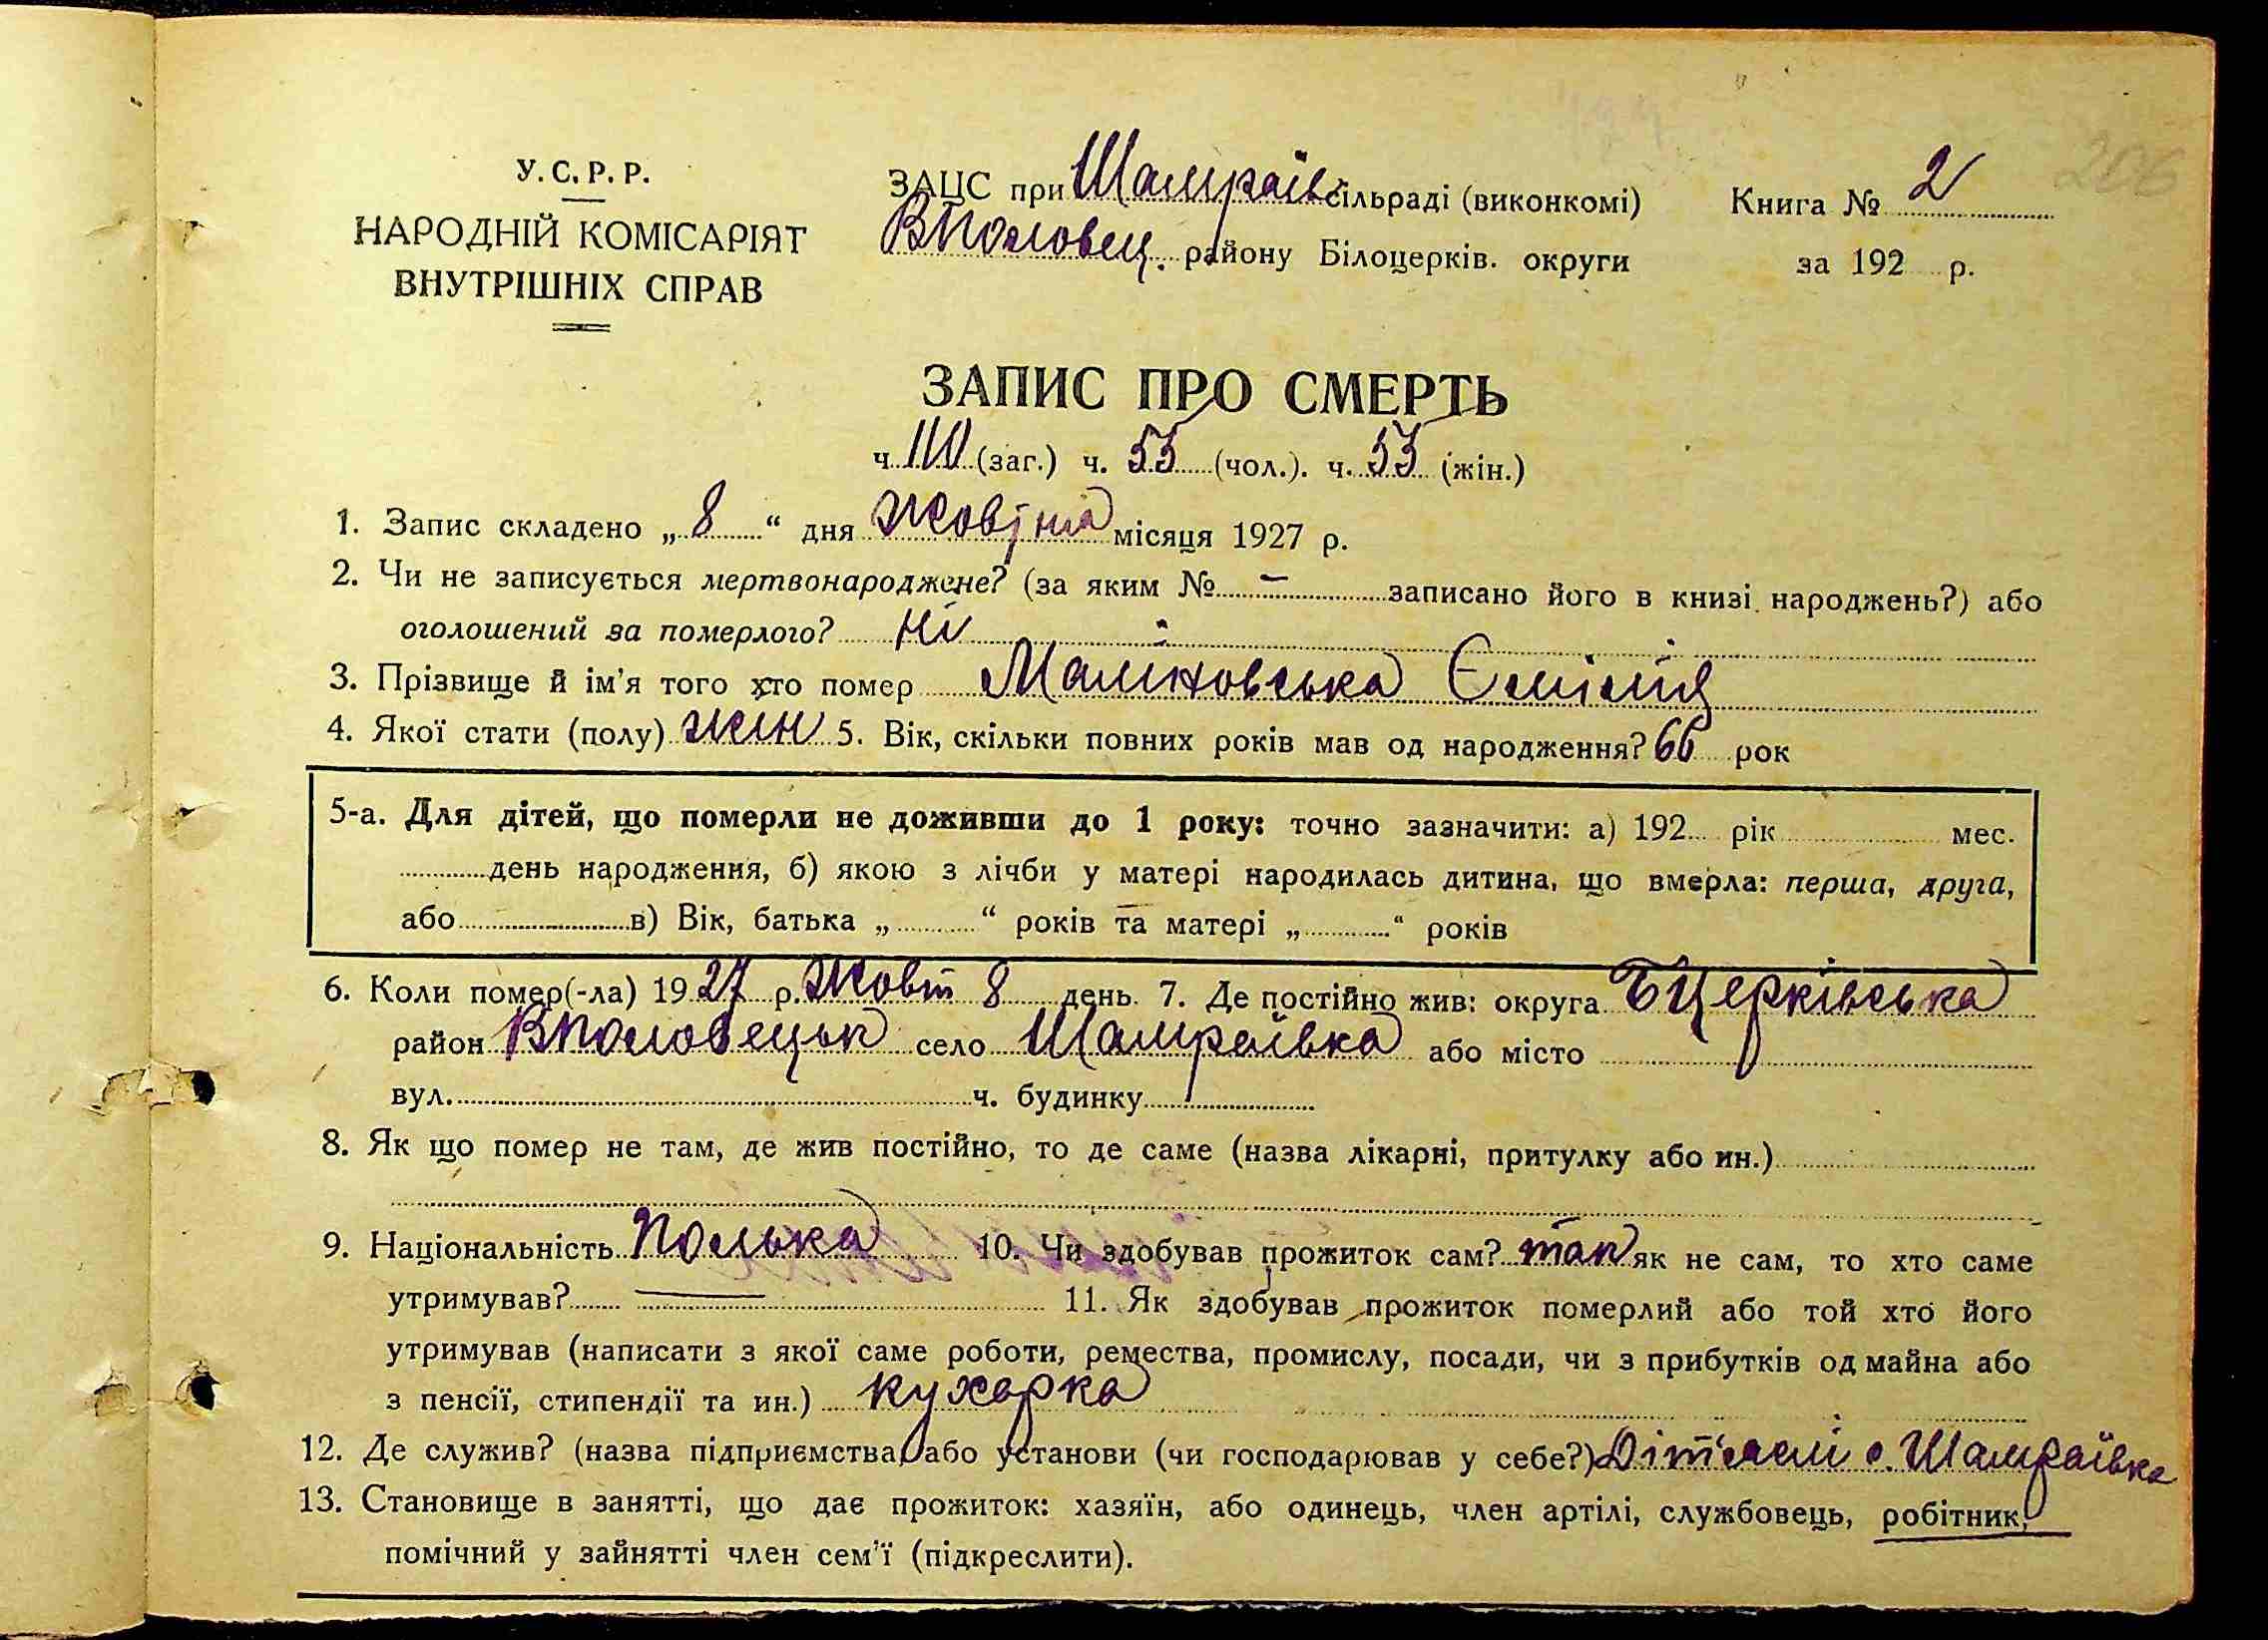 206
У. С. Р. Р.
НАРОДНІЙ КОМІСАРІЯТ
ВНУТРІШНІХ СПРАВ
ЗАЦС при Шамраївс сільраді (виконкомі)
ВПоловец. району Білоцерків. округи
Книга № 2
за 192 р.
ЗАПИС ПРО СМЕРТЬ
ч. 110 (заг.) ч. 55 (чол.). ч. 55 (жін.)
1. Запис складено „ 8 “ дня Жовтня місяця 1927 р.
2. Чи не записується мертвонароджене? (за яким № – записано його в книзі народжень?) або
оголошений за померлого? ні
3. Прізвище й ім'я того хто помер Маліновська Ємілія
4. Якої стати (полу) жін 5. Вік, скільки повних років мав од народження? 66 рок
5-а. Для дітей, що померли не доживши до 1 року: точно зазначити: а) 192 рік мес.
день народження, б) якою з лічби у матері народилась дитина, що вмерла: перша, друга,
або в) Вік, батька „ “ років та матері „ “ років
6. Коли помер(-ла) 1927 р. Жовт 8 день 7. Де постійно жив: округа БЦерківська
район ВПоловецьк село Шамраївка або місто
вул. ч. будинку
8. Як що помер не там, де жив постійно, то де саме (назва лікарні, притулку або ин.)
9. Національність Полька 10. Чи здобував прожиток сам? так як не сам, то хто саме
утримував? — 11. Як здобував прожиток померлий або той хто його
утримував (написати з якої саме роботи, ремества, промислу, посади, чи з прибутків од майна або
з пенсії, стипендії та ин.) кухарка
12. Де служив? (назва підприємства або установи (чи господарював у себе?) Діт'яслі с. Шамраївка
13. Становище в занятті, що дає прожиток: хазяїн, або одинець, член артілі, службовець, робітник,
помічний у зайнятті член сем'ї (підкреслити).